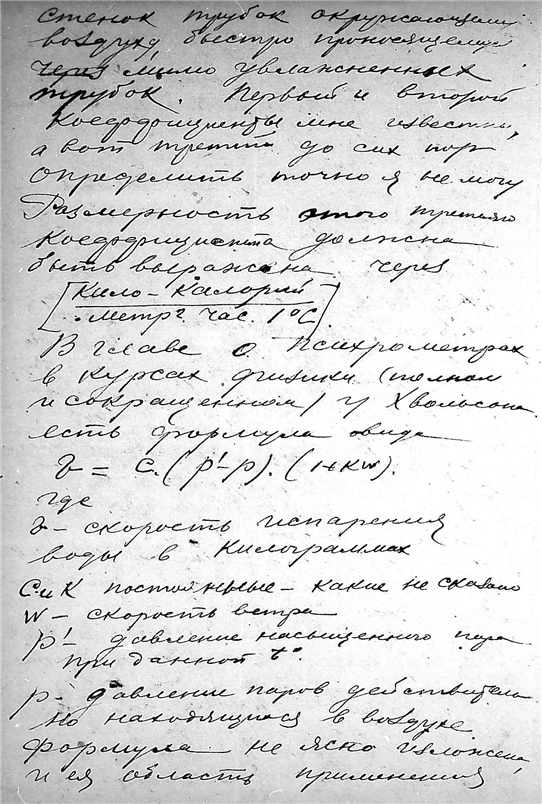 стенок трубок окружающим
воздухд, быстро проносящемся
через мимо увлажненных
трубок. Первый и второй
коеффициенты мне известны,
а вот третий до сих пор
определить точно я не могу
Размерность этого третьяго
коеффициента должна
быть выражена через
[Кило-Калорий
метр² час. 1°C]
В главе о Психрометрах
в курсах физики (полном
и сокращенном) у Хвольсона
есть формула вида
v = c.(p'-p).(1+kw).
где
v - скорость испарения
воды в Килограммах
С и К постоянные - какие не сказано
W - скорость ветра
p' - давление насыщенного пара
при данной t°.
p - давление паров действитель
но находящихся в воздухе
формула не ясно изложена,
и ея область применения